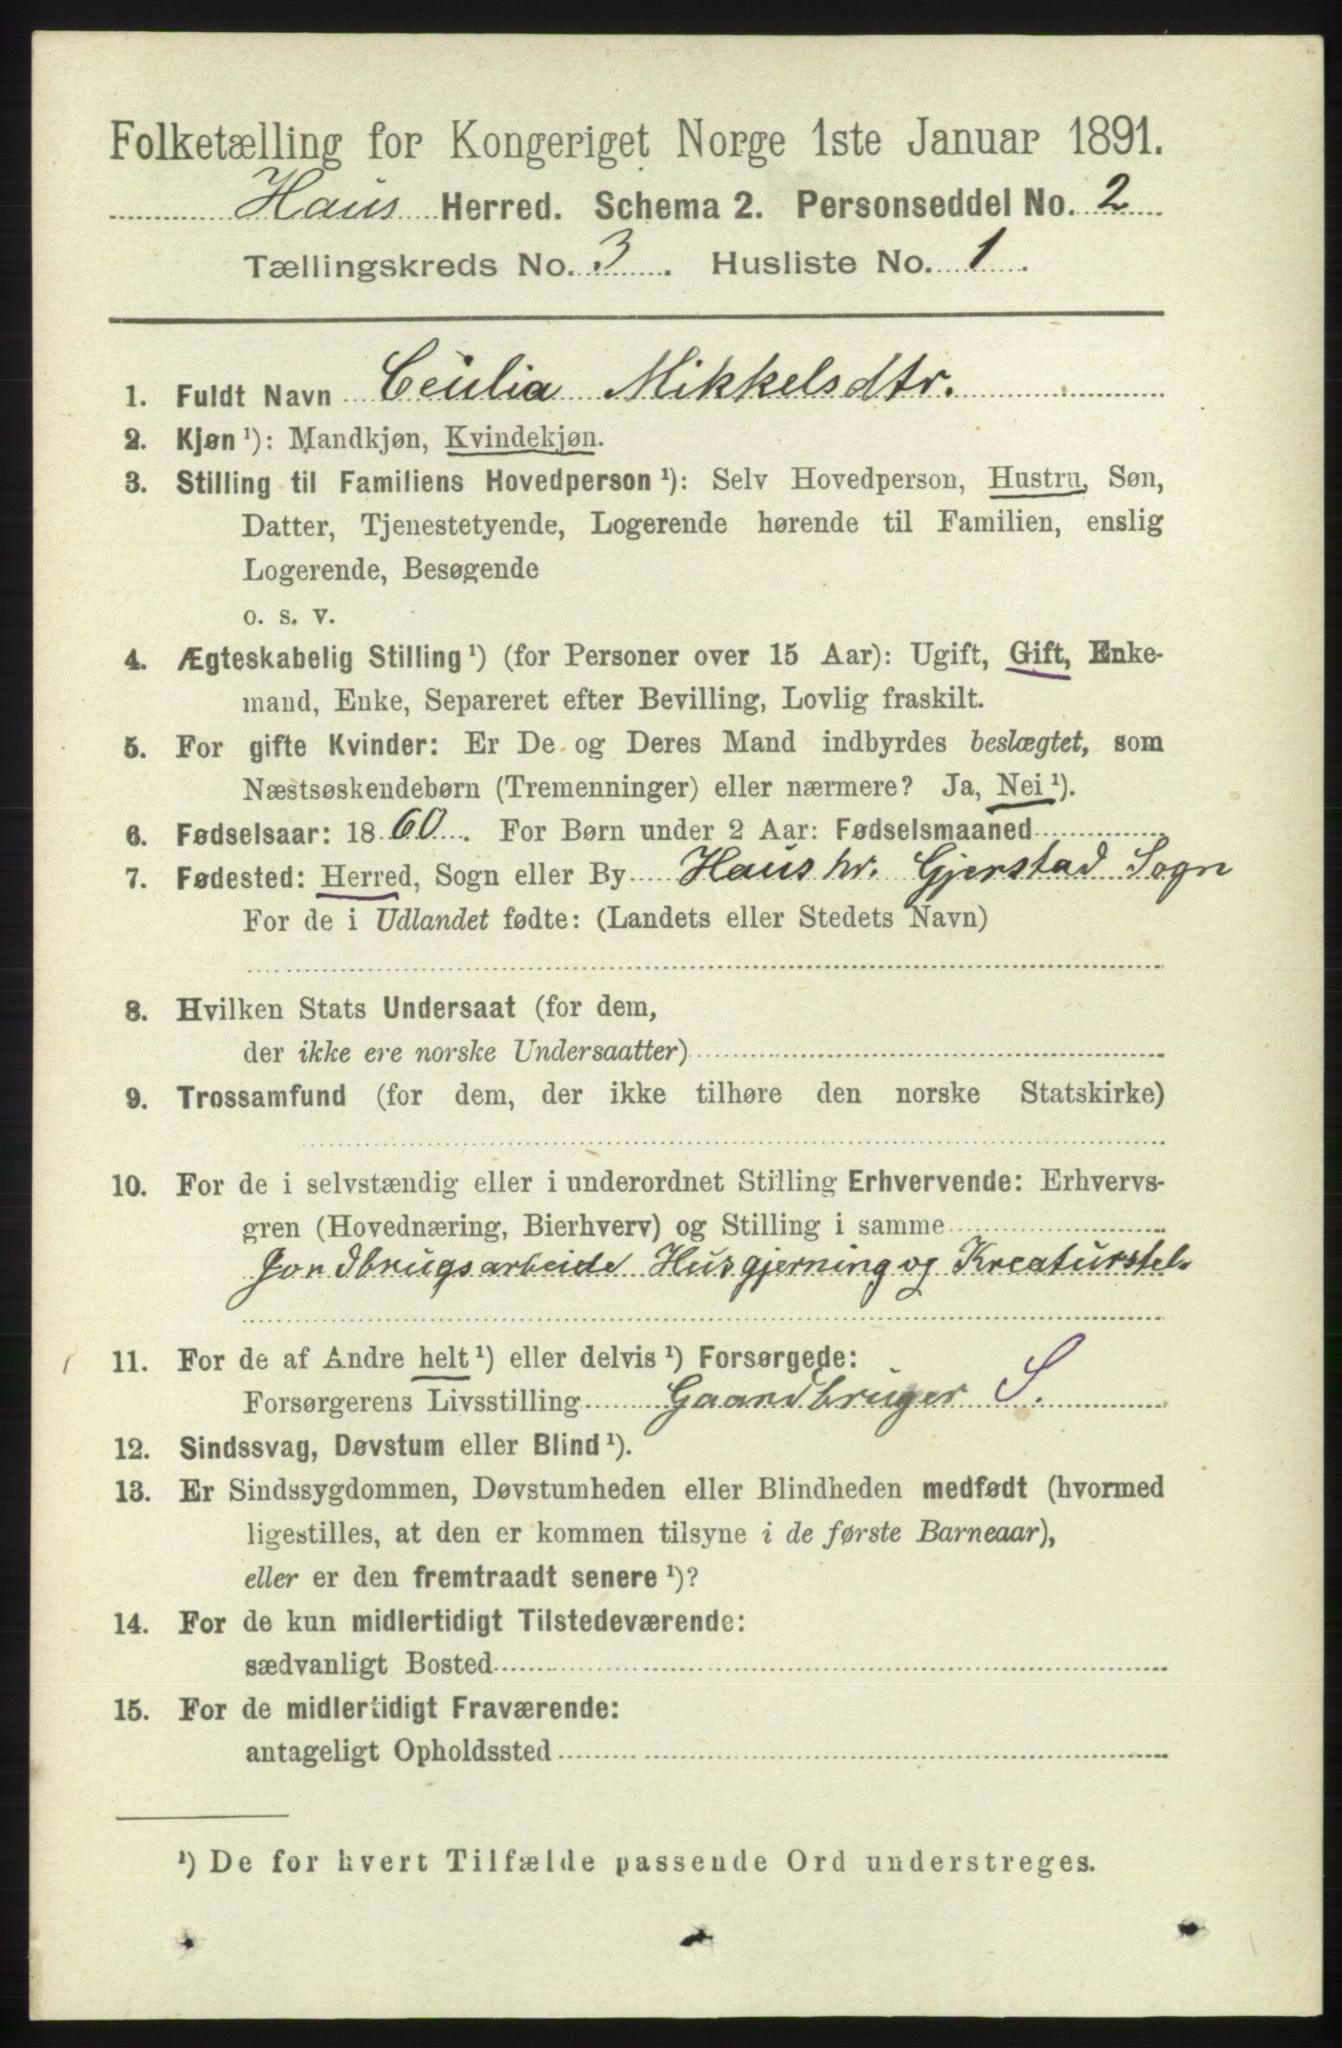 Folketælling for Kongeriget Norge 1ste Januar 1891.
Haus Herred. Schema 2. Personseddel No. 2
Tællingskreds No. 3. Husliste No. 1.
1. Fuldt Navn Cecilia Mikkelsdtr.
2. Kjøn ¹): Mandkjøn, Kvindekjøn.
3. Stilling til Familiens Hovedperson ¹): Selv Hovedperson, Hustru, Søn,
Datter, Tjenestetyende, Logerende hørende til Familien, enslig
Logerende, Besøgende
o. s. v.
4. Ægteskabelig Stilling ¹) (for Personer over 15 Aar): Ugift, Gift, Enke-
mand, Enke, Separeret efter Bevilling, Lovlig fraskilt.
5. For gifte Kvinder: Er De og Deres Mand indbyrdes beslægtet, som
Næstsøskendebørn (Tremenninger) eller nærmere? Ja, Nei ¹).
6. Fødselsaar: 1860. For Børn under 2 Aar: Fødselsmaaned
7. Fødested: Herred, Sogn eller By Haus hr. Gjerstad Sogn
For de i Udlandet fødte: (Landets eller Stedets Navn)
8. Hvilken Stats Undersaat (for dem,
der ikke ere norske Undersaatter)
9. Trossamfund (for dem, der ikke tilhøre den norske Statskirke)
10. For de i selvstændig eller i underordnet Stilling Erhvervende: Erhvervs-
gren (Hovednæring, Bierhverv) og Stilling i samme
Jordbrugsarbeide Husgjerning og Kreaturstel.
11. For de af Andre helt ¹) eller delvis ¹) Forsørgede:
Forsørgerens Livsstilling Gaardbruger S.
12. Sindssvag, Døvstum eller Blind ¹).
13. Er Sindssygdommen, Døvstumheden eller Blindheden medfødt (hvormed
ligestilles, at den er kommen tilsyne i de første Barneaar),
eller er den fremtraadt senere ¹)?
14. For de kun midlertidigt Tilstedeværende:
sædvanligt Bosted
15. For de midlertidigt Fraværende:
antageligt Opholdssted
¹) De for hvert Tilfælde passende Ord understreges.